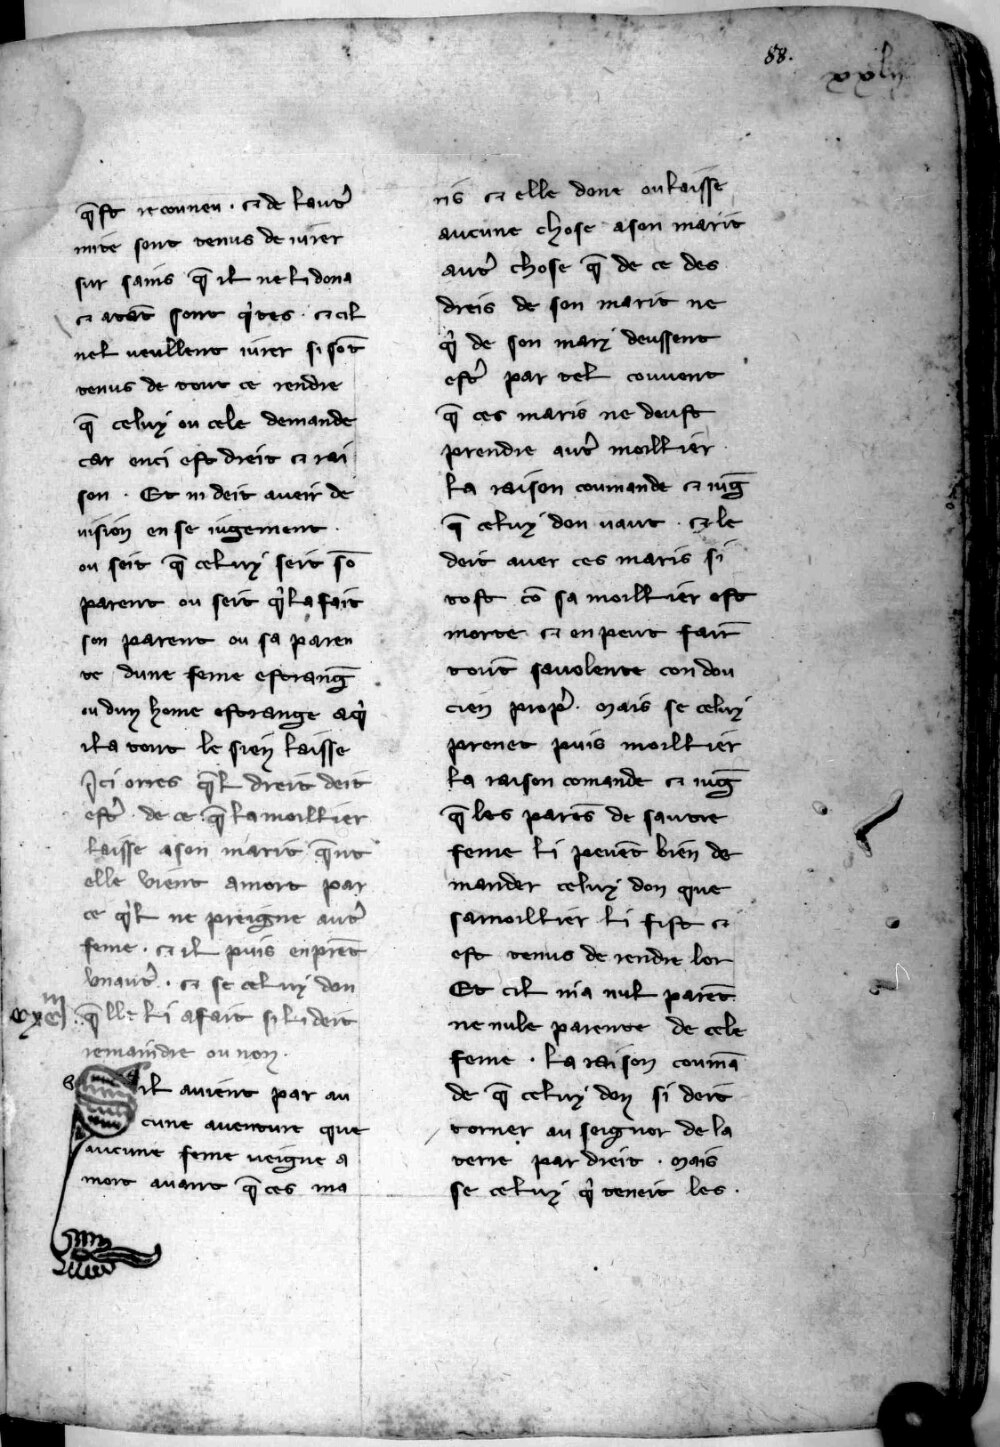 88.
xxlij
q̃st reconneu · ⁊ de lautr̉
mite sont tenus de iurer
sur sains q̃ il ne li dona
⁊ atãt sont q̉tes · ⁊ cil
nel veullent iurer si sõt
tenus de tout ce rendre
q̃ celuy ou cele demande
car enci est dreit ⁊ rai
son · Et ni deit aveir de
vision en se iugement ·
ou seit q̃ celuy seit sõ
parent ou seit q̉ la fait
son parent ou sa paren
te dune feme estrang̃
ou dun home estrange aq̉
il a tout le sien laisse
Ici orres q̃l dreit deit
estr̉ · de ce q̃ la moillier
laisse a son marit q̃nt
elle vient a mort par
ce q̉l ne preigne autr̉
feme · ⁊ il puis en prẽt
vnautr̉ · ⁊ se celuy don
q̃lle li a fait si li deit
remaindre ou non ·
S il avient par au
cune aventure que
aucune feme veigne a
mort avant q̃ ces ma
ris ⁊ elle done ou laisse
aucune chose a son marit
autr̉ chose q̃ de ce des
dreis de son marit ne
q̉ de son mary deussent
estr̉ par tel couvent
q̃ ces maris ne deust
prendre autr̉ moillier ·
la raison coumande ⁊ iug̃
q̃ celuy don vaut · ⁊ le
deit aver ces maris si
tost cõ sa moillier est
morte ⁊ en peut fair̃
tout̃ sa volente con dou
cien propr̉ · Mais se celuy
prenet puis moillier
la raison comande ⁊ iug̃
q̃ les parẽs de sautre
feme li pevẽt bien de
mander celuy don que
sa moillier li fist ⁊
est tenus de rendre lor
Et cil nia nul parẽt
ne nule parente de cele
feme · la raison coumã
de q̃ celuy don si deit
torner au seignor de la
terre par dreit · Mais
se celuy q̉ teneit les ·